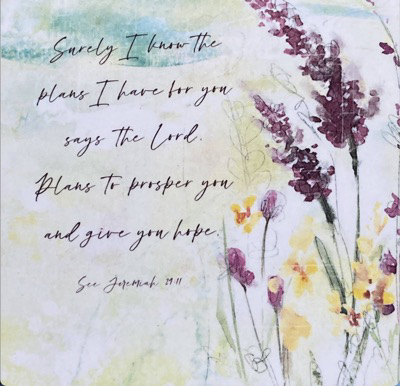 Surely I know the
plans I have for you
says the Lord.
Plans to prosper you
and give you hope.
See Jeremiah 29:11